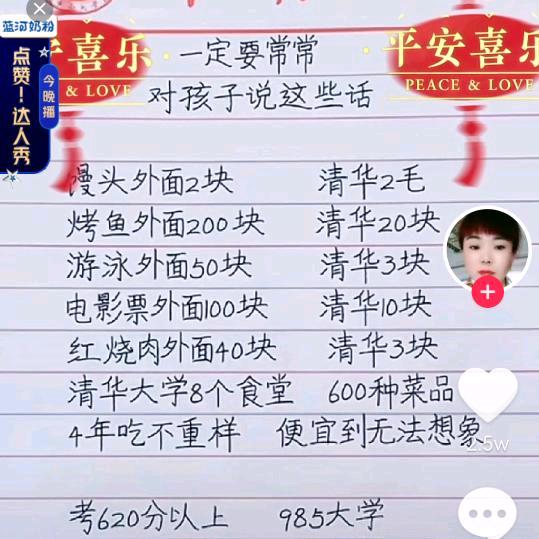 蓝河奶粉
点赞！达人秀
今晚播
平安喜乐
PEACE & LOVE
安喜乐
& LOVE
一定要常常
对孩子说这些话
馒头外面2块 清华2毛
烤鱼外面200块 清华20块
游泳外面50块 清华3块
电影票外面100块 清华10块
红烧肉外面40块 清华3块
清华大学8个食堂 600种菜品
4年吃不重样 便宜到无法想象
2.5w
考620分以上 985大学